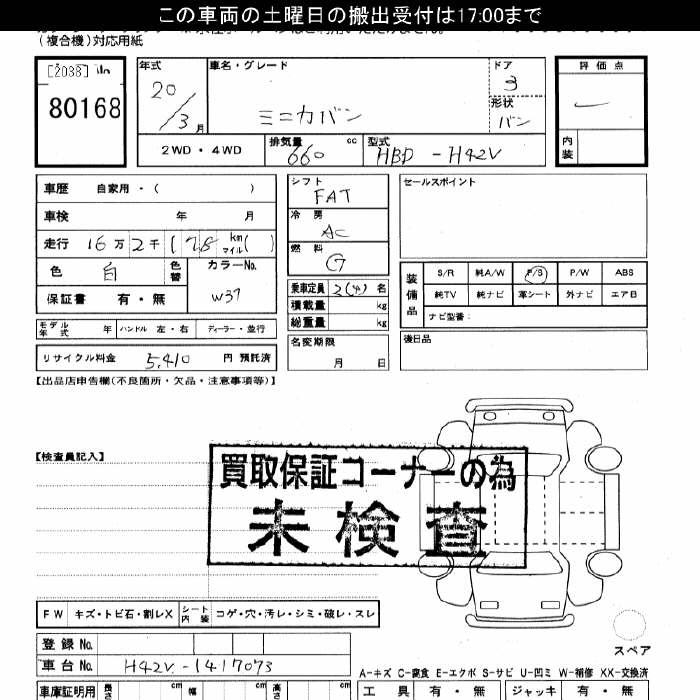 この車両の土曜日の搬出受付は17:00まで
(複合機)対応用紙
[2038]
80168
年式 20/3月
車名・グレード ミニカバン
ドア 3
形状 バン
評価点
内装
2WD・4WD
排気量 660 cc
型式 HBD-H42V
車歴 自家用・( )
車検 年 月
走行 16万2千(78 km マイル( )
色 白 色替
カラーNo. W37
保証書 有・無
シフト FAT
冷房 AC
燃料 G
乗車定員 2(4)名
積載量 kg
総重量 kg
名変期限 月 日
セールスポイント
装備品
S/R 純A/W P/S P/W ABS
純TV 純ナビ 革シート 外ナビ エアB
ナビ型番:
後日品
モデル年式 年 ハンドル 左・右 ディーラー・並行
リサイクル料金 5,410 円 預託済
【出品店申告欄(不良箇所・欠品・注意事項等)】
【検査員記入】
買取保証コーナーの為
未検査
FW キズ・トビ石・割レX シート内装 コゲ・穴・汚レ・シミ・破レ・スレ
スペア
登録No.
車台No. H42V-1417073
A-キズ C-腐食 E-エクボ S-サビ U-凹ミ W-補修 XX-交換済
車庫証明用 長さ cm 幅 cm 高さ cm
工具 有・無 ジャッキ 有・無